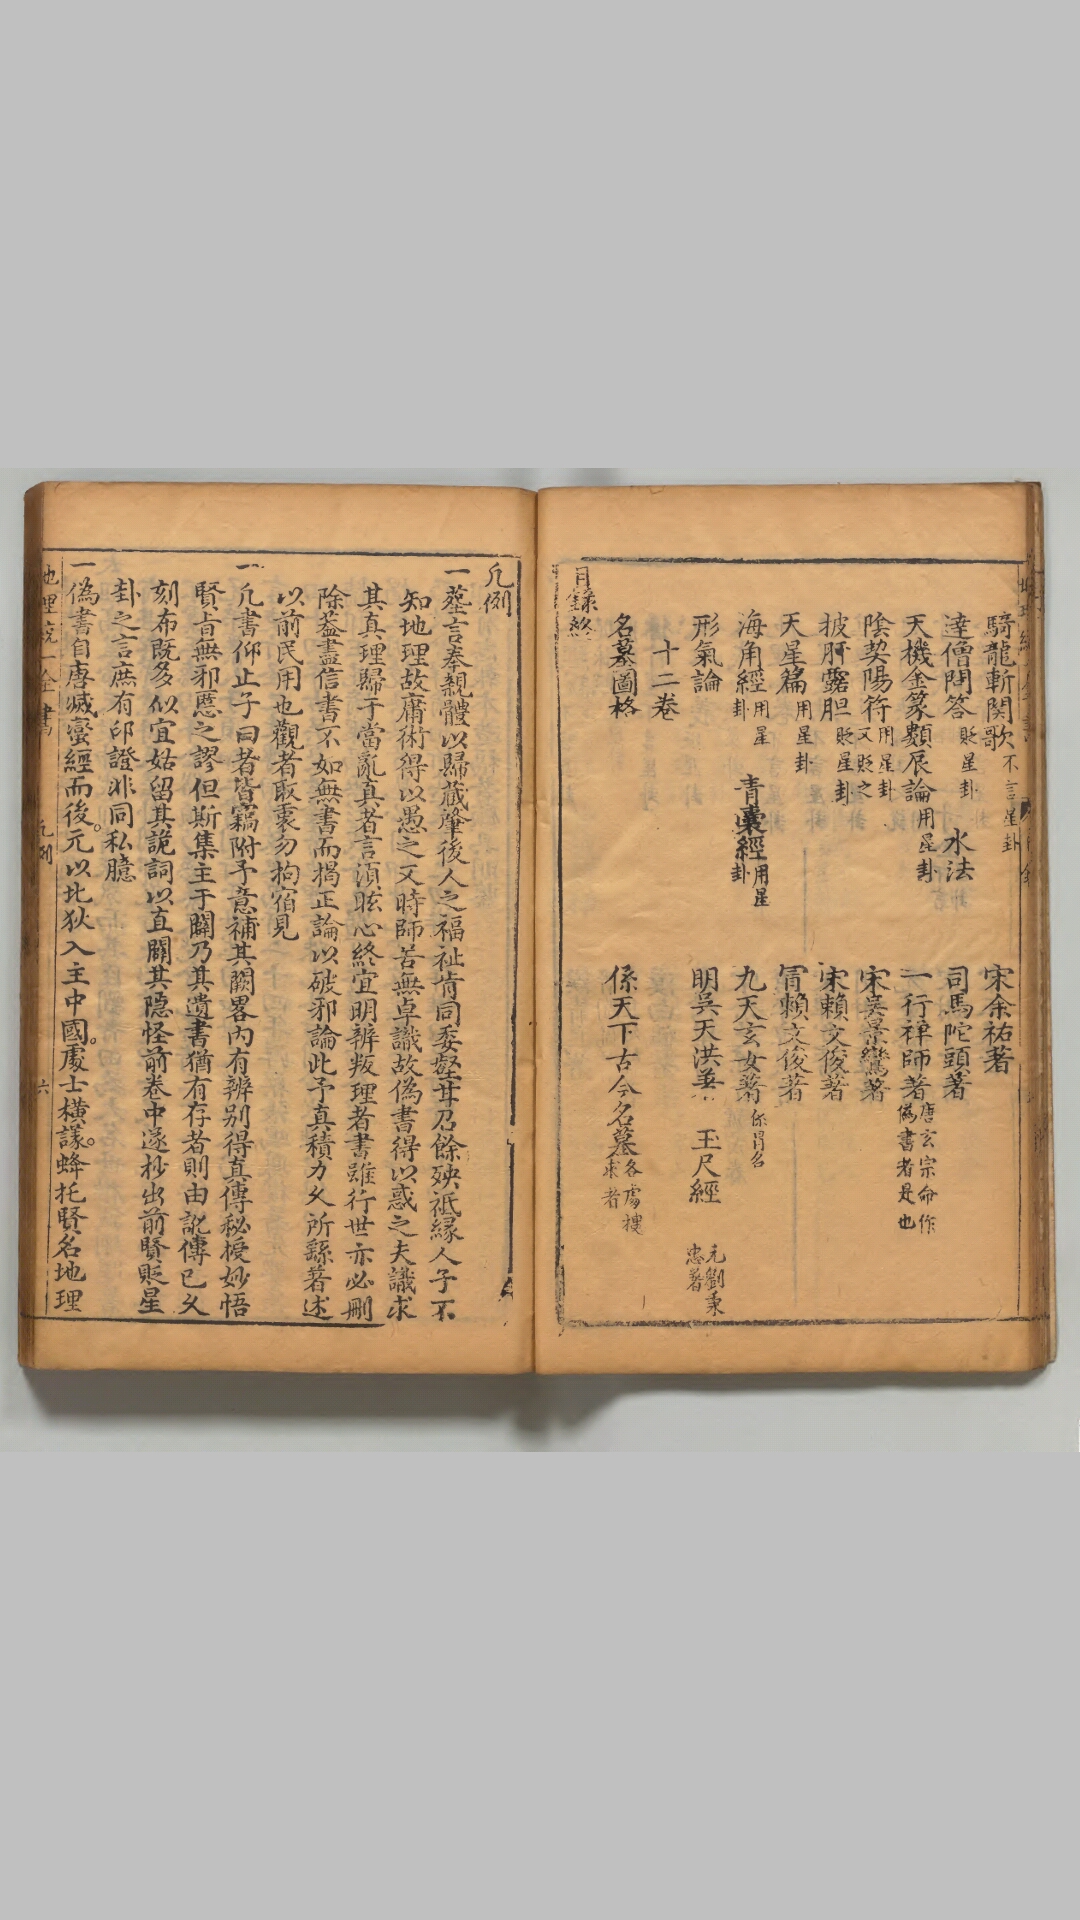 騎龍斬関歌不言星卦 宋余祐著
達僧問答貶星卦 水法 司馬陀頭著
天機金篆數展論用星卦 一行禅師著唐玄宗命作偽書者是也
陰契陽符用星卦又貶之 宋吳景鸞著
披肝露胆貶星卦 宋賴文俊著
天星篇用星卦 冐賴文俊著
海角經用星卦 青囊經用星卦 九天玄女著係冐名
形氣論 明吳天洪著 玉尺經元劉秉忠著
十二卷
名墓圖格 係天下古今名墓各處搜求者
目録終
凡例
一塟言奉親體以歸藏肇後人之福祉肯同委壑毌乃餘殃祗緣人子不
知地理故庸術得以愚之又時師苦無卓識故偽書得以惑之夫識求
其真理歸于當亂真者言須眩心終宜明辨叛理者書雖行世亦必刪
除葢盡信書不如無書而揭正論以破邪論此予真積力久所繇著述
以前民用也觀者取裏勿拘宿見
一凡書仰止子曰者皆竊附予意補其闕畧內有辨别得真傳秘授妙悟
賢㫖無邪慝之謬但斯集主于闢乃其遺書猶有存者則由訛傳已久
刻布既多似宜姑留其詭詞以直闢其隠怪前卷中遂抄出前賢貶星
卦之言庶有印證非同私臆
一偽書自唐滅蠻經而後。元以北狄入主中國。處士橫議。蜂托賢名地理
地理統一全書 凡例 六